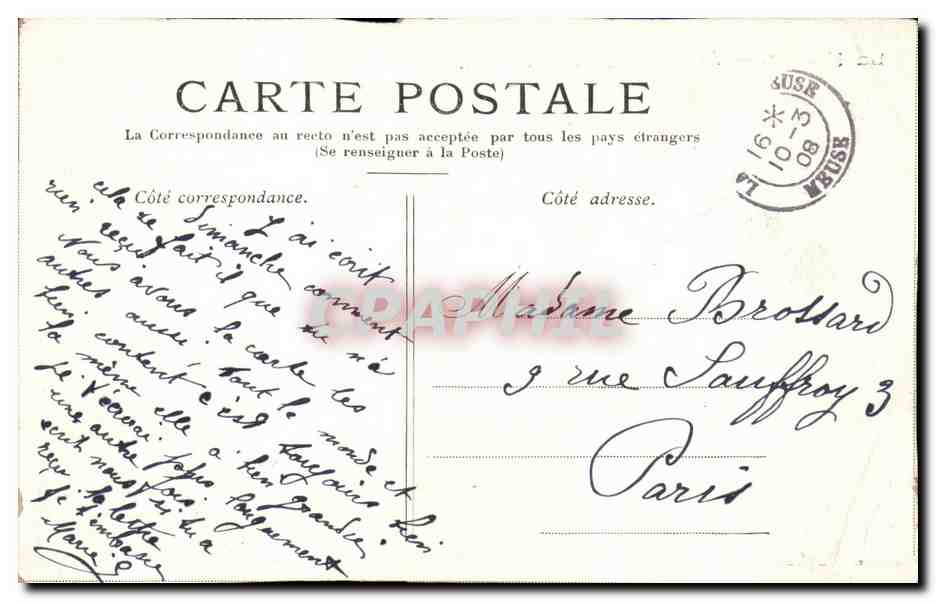 CARTE POSTALE
La Correspondance au recto n'est pas acceptée par tous les pays étrangers
(Se renseigner à la Poste)
Côté correspondance.
Côté adresse.
LA MEUSE
MEUSE
16 * 3
10 - 08
J'ai écrit
Dimanche comment
cela se fait il que tu n'a
rien reçu
Nous avons la carte les
autres aussi tout le monde et
bien content c'est toujours bien
la même elle a bien grandie
Je t'écrirai plus longuement
une autre fois
écrit nous si tu a
reçu la lettre
Je t'embrasse
Marie
Madame Brossard
9 rue Sauffroy 3
Paris
CPAPHIL